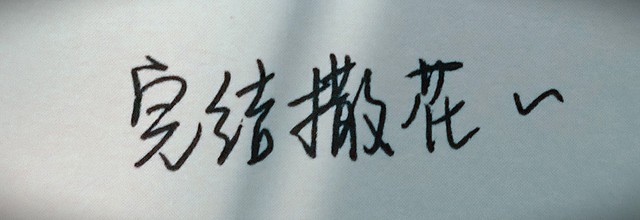 完结撒花~